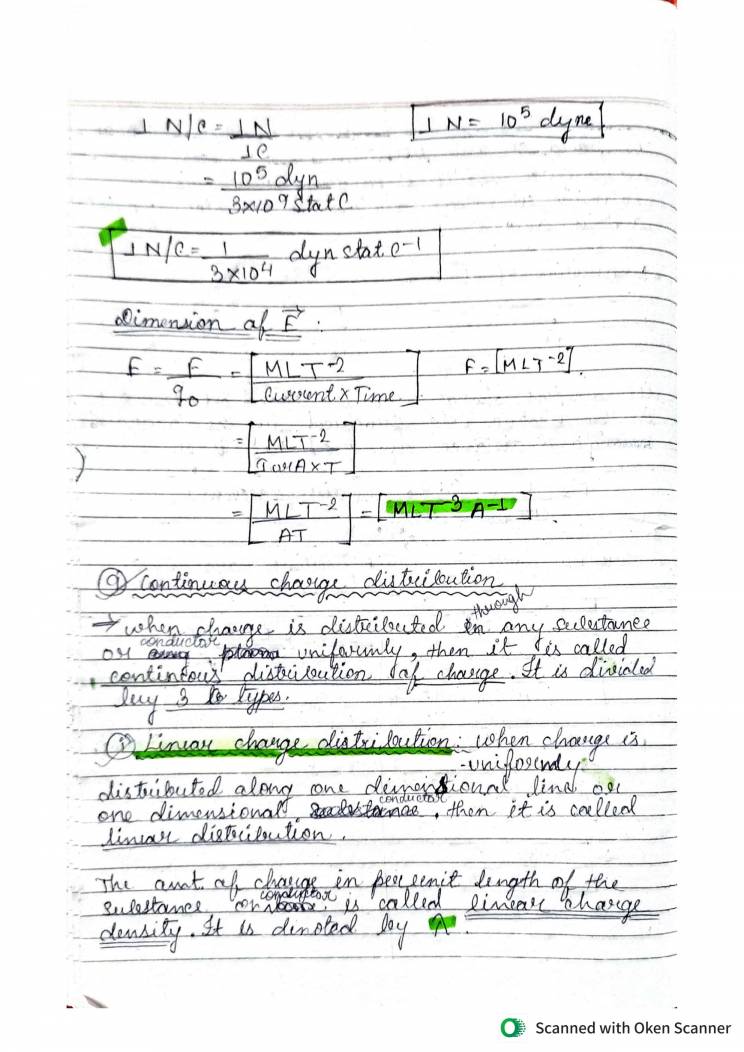 1 N/C = 1N / 1C
1 N = 10⁵ dyne
= 10⁵ dyn / 3×10⁹ Stat C
1 N/C = 1 / 3×10⁴ dyn stat C⁻¹
Dimension of E⃗ :
E = F / q₀ = [MLT⁻² / Current × Time] F = [MLT⁻²].
= [MLT⁻² / I or A × T]
= [MLT⁻² / AT] = [MLT⁻³ A⁻¹]
9 Continuous charge distribution
→ when charge is distributed through any substance
or conductor uniformly, then it is called
continuous distribution of charge. It is divided
by 3 types.
(i) Linear charge distribution : when charge is
uniformly
distributed along one dimensional line or
one dimensional conductor, then it is called
linear distribution.
The amt. of charge in per unit length of the
substance or conductor is called linear charge
density. It is denoted by λ.
Scanned with Oken Scanner